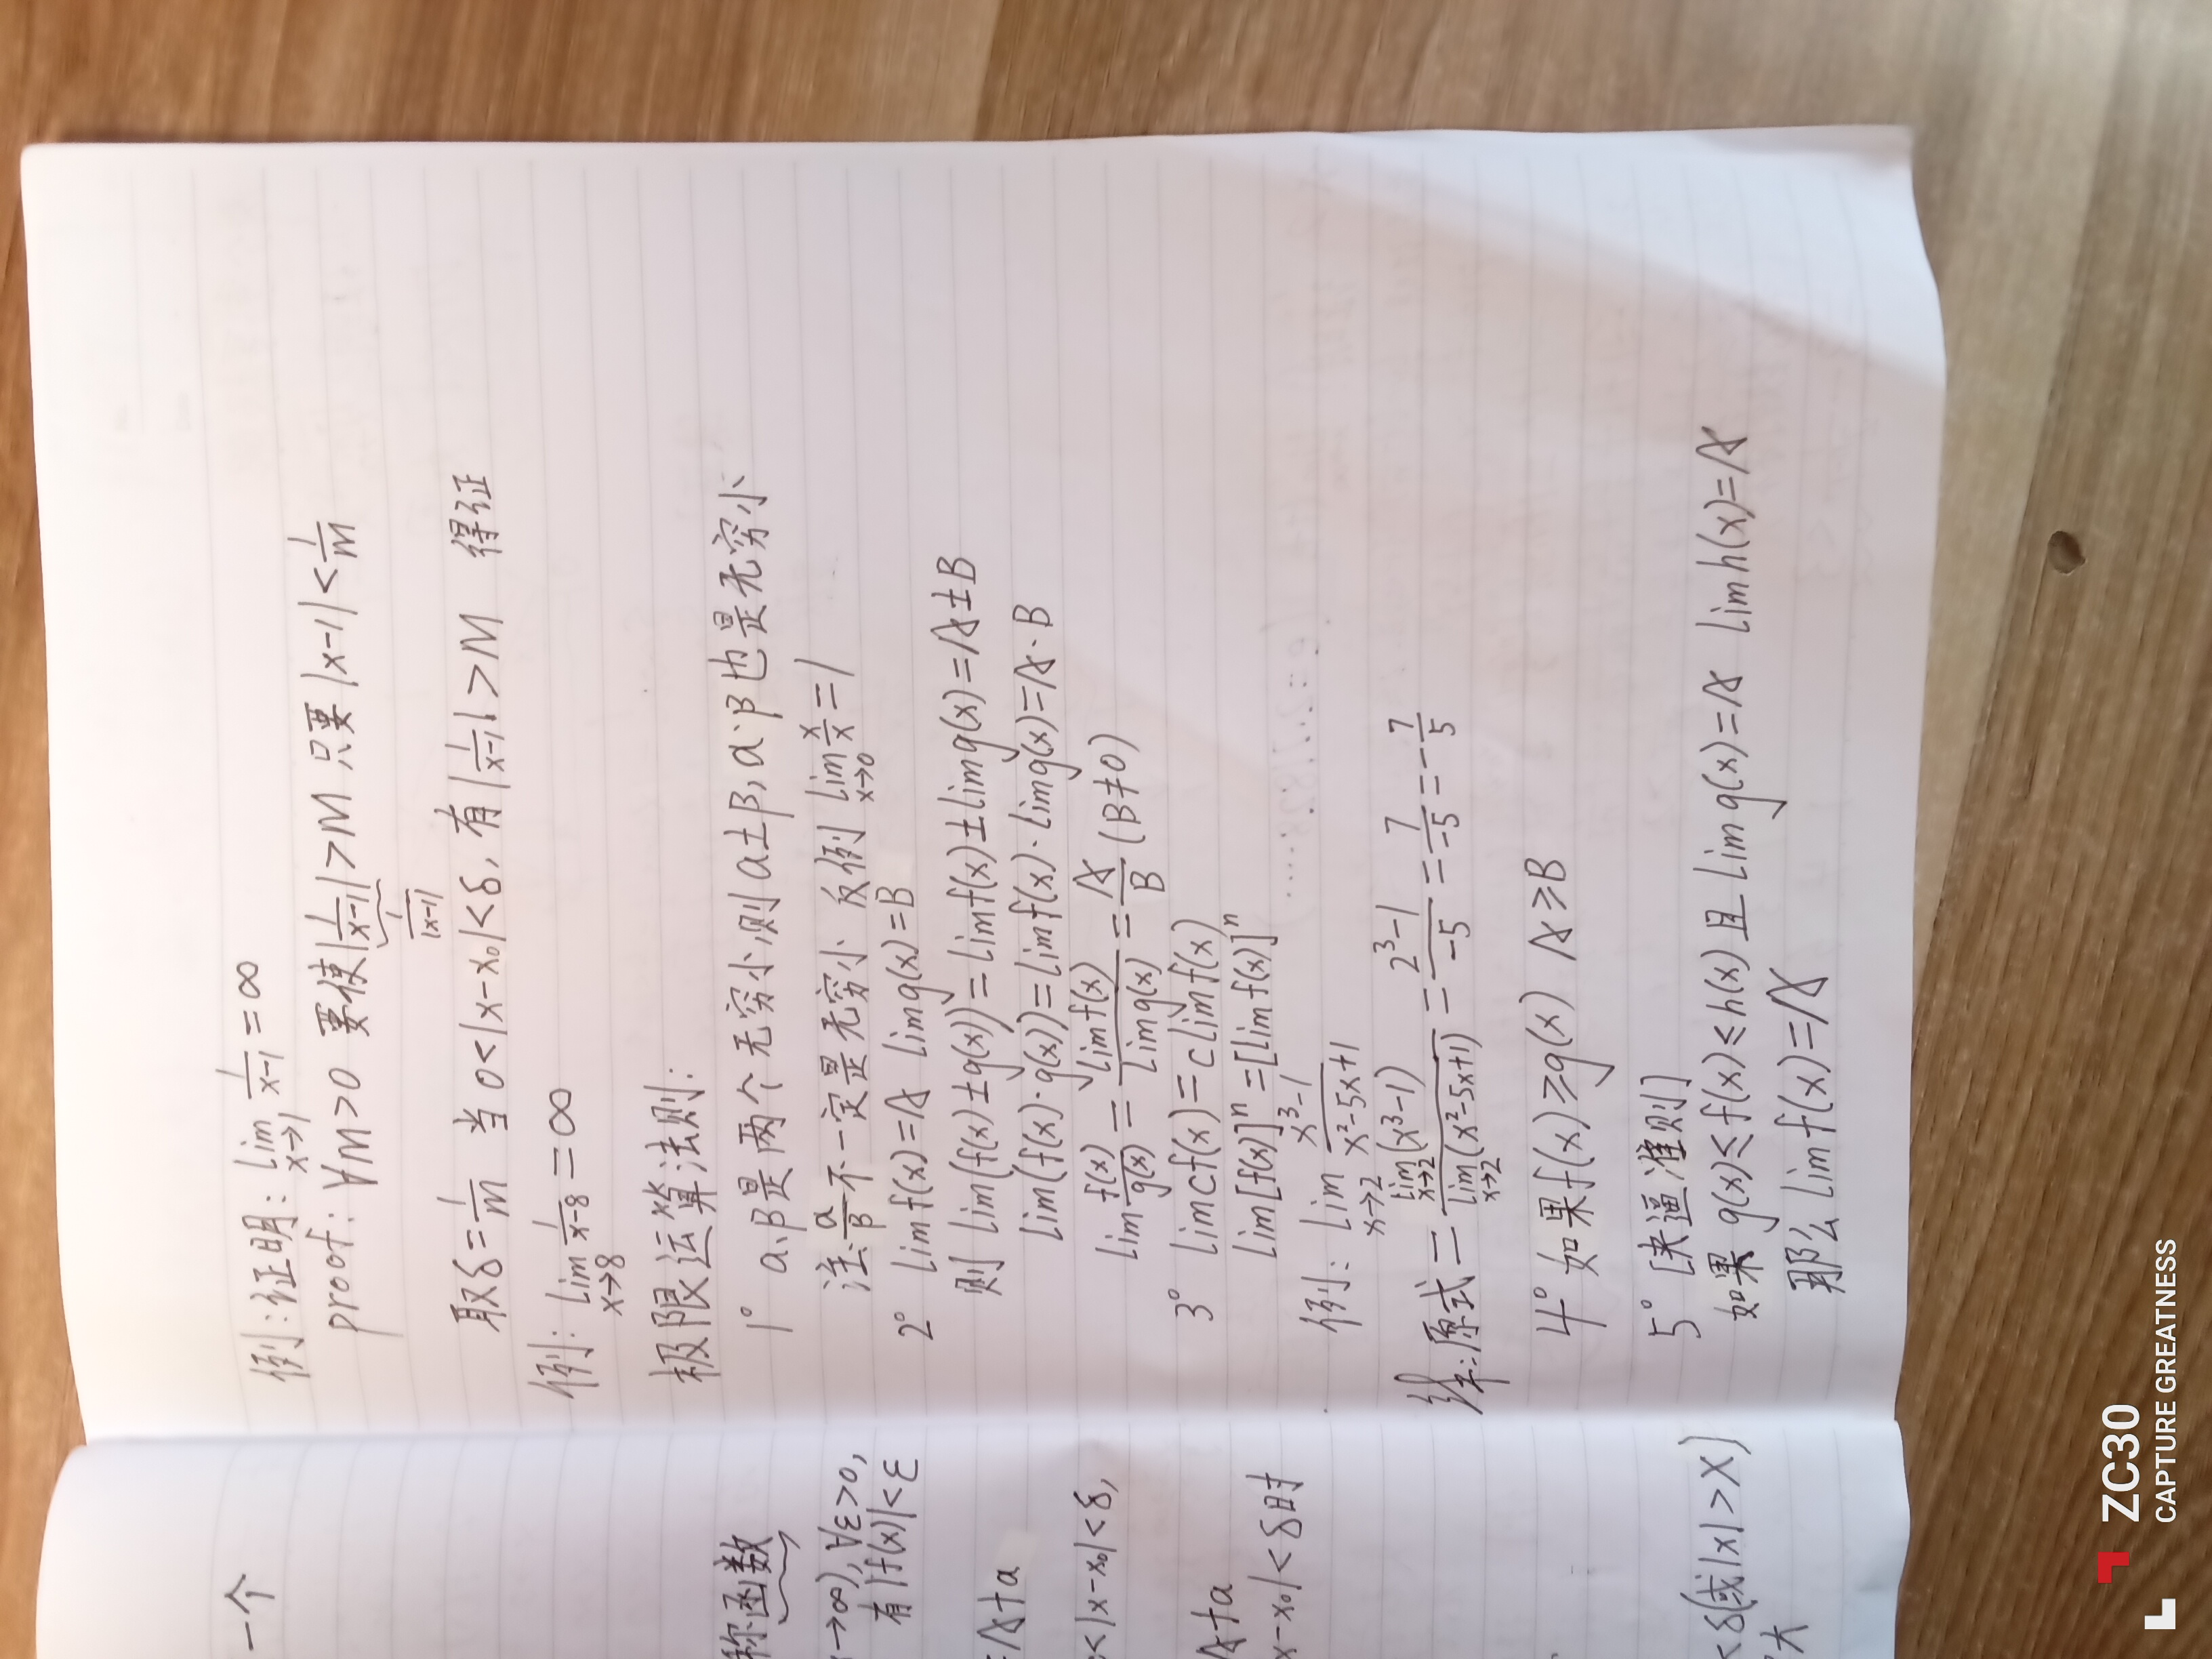 例:证明: lim 1/(x-1) = ∞
x→1
proof: ∀M>0 要使|1/(x-1)|>M 只要|x-1|<1/M
1/|x-1|
取δ=1/M 当0<|x-x₀|<δ, 有|1/(x-1)|>M 得证
例: lim 1/(x-8) = ∞
x→8
极限运算法则:
1° a、β是两个无穷小则a±β, a·β也是无穷小
注: a/β 不一定是无穷小 反例 lim x/x = 1
x→0
2° lim f(x)=A lim g(x)=B
则 lim(f(x)±g(x))=lim f(x)±lim g(x)=A±B
lim(f(x)·g(x))=lim f(x)·lim g(x)=A·B
lim f(x)/g(x) = lim f(x)/lim g(x) = A/B (B≠0)
3° lim cf(x)=c lim f(x)
lim[f(x)]ⁿ=[lim f(x)]ⁿ
例: lim (x³-1)/(x²-5x+1)
x→2
解:原式= lim(x³-1)/lim(x²-5x+1) = (2³-1)/-5 = 7/-5 = -7/5
x→2
x→2
4° 如果f(x)≥g(x) A≥B
5° [夹逼准则]
如果 g(x)≤f(x)≤h(x) 且 lim g(x)=A lim h(x)=A
那么 lim f(x)=A
一个
称函数
→∞), ∀ε>0,
有|f(x)|<ε
=A+a
<|x-x₀|<δ,
A+a
x-x₀|<δ时
<δ(或|x|>X)
大
ZC30
CAPTURE GREATNESS